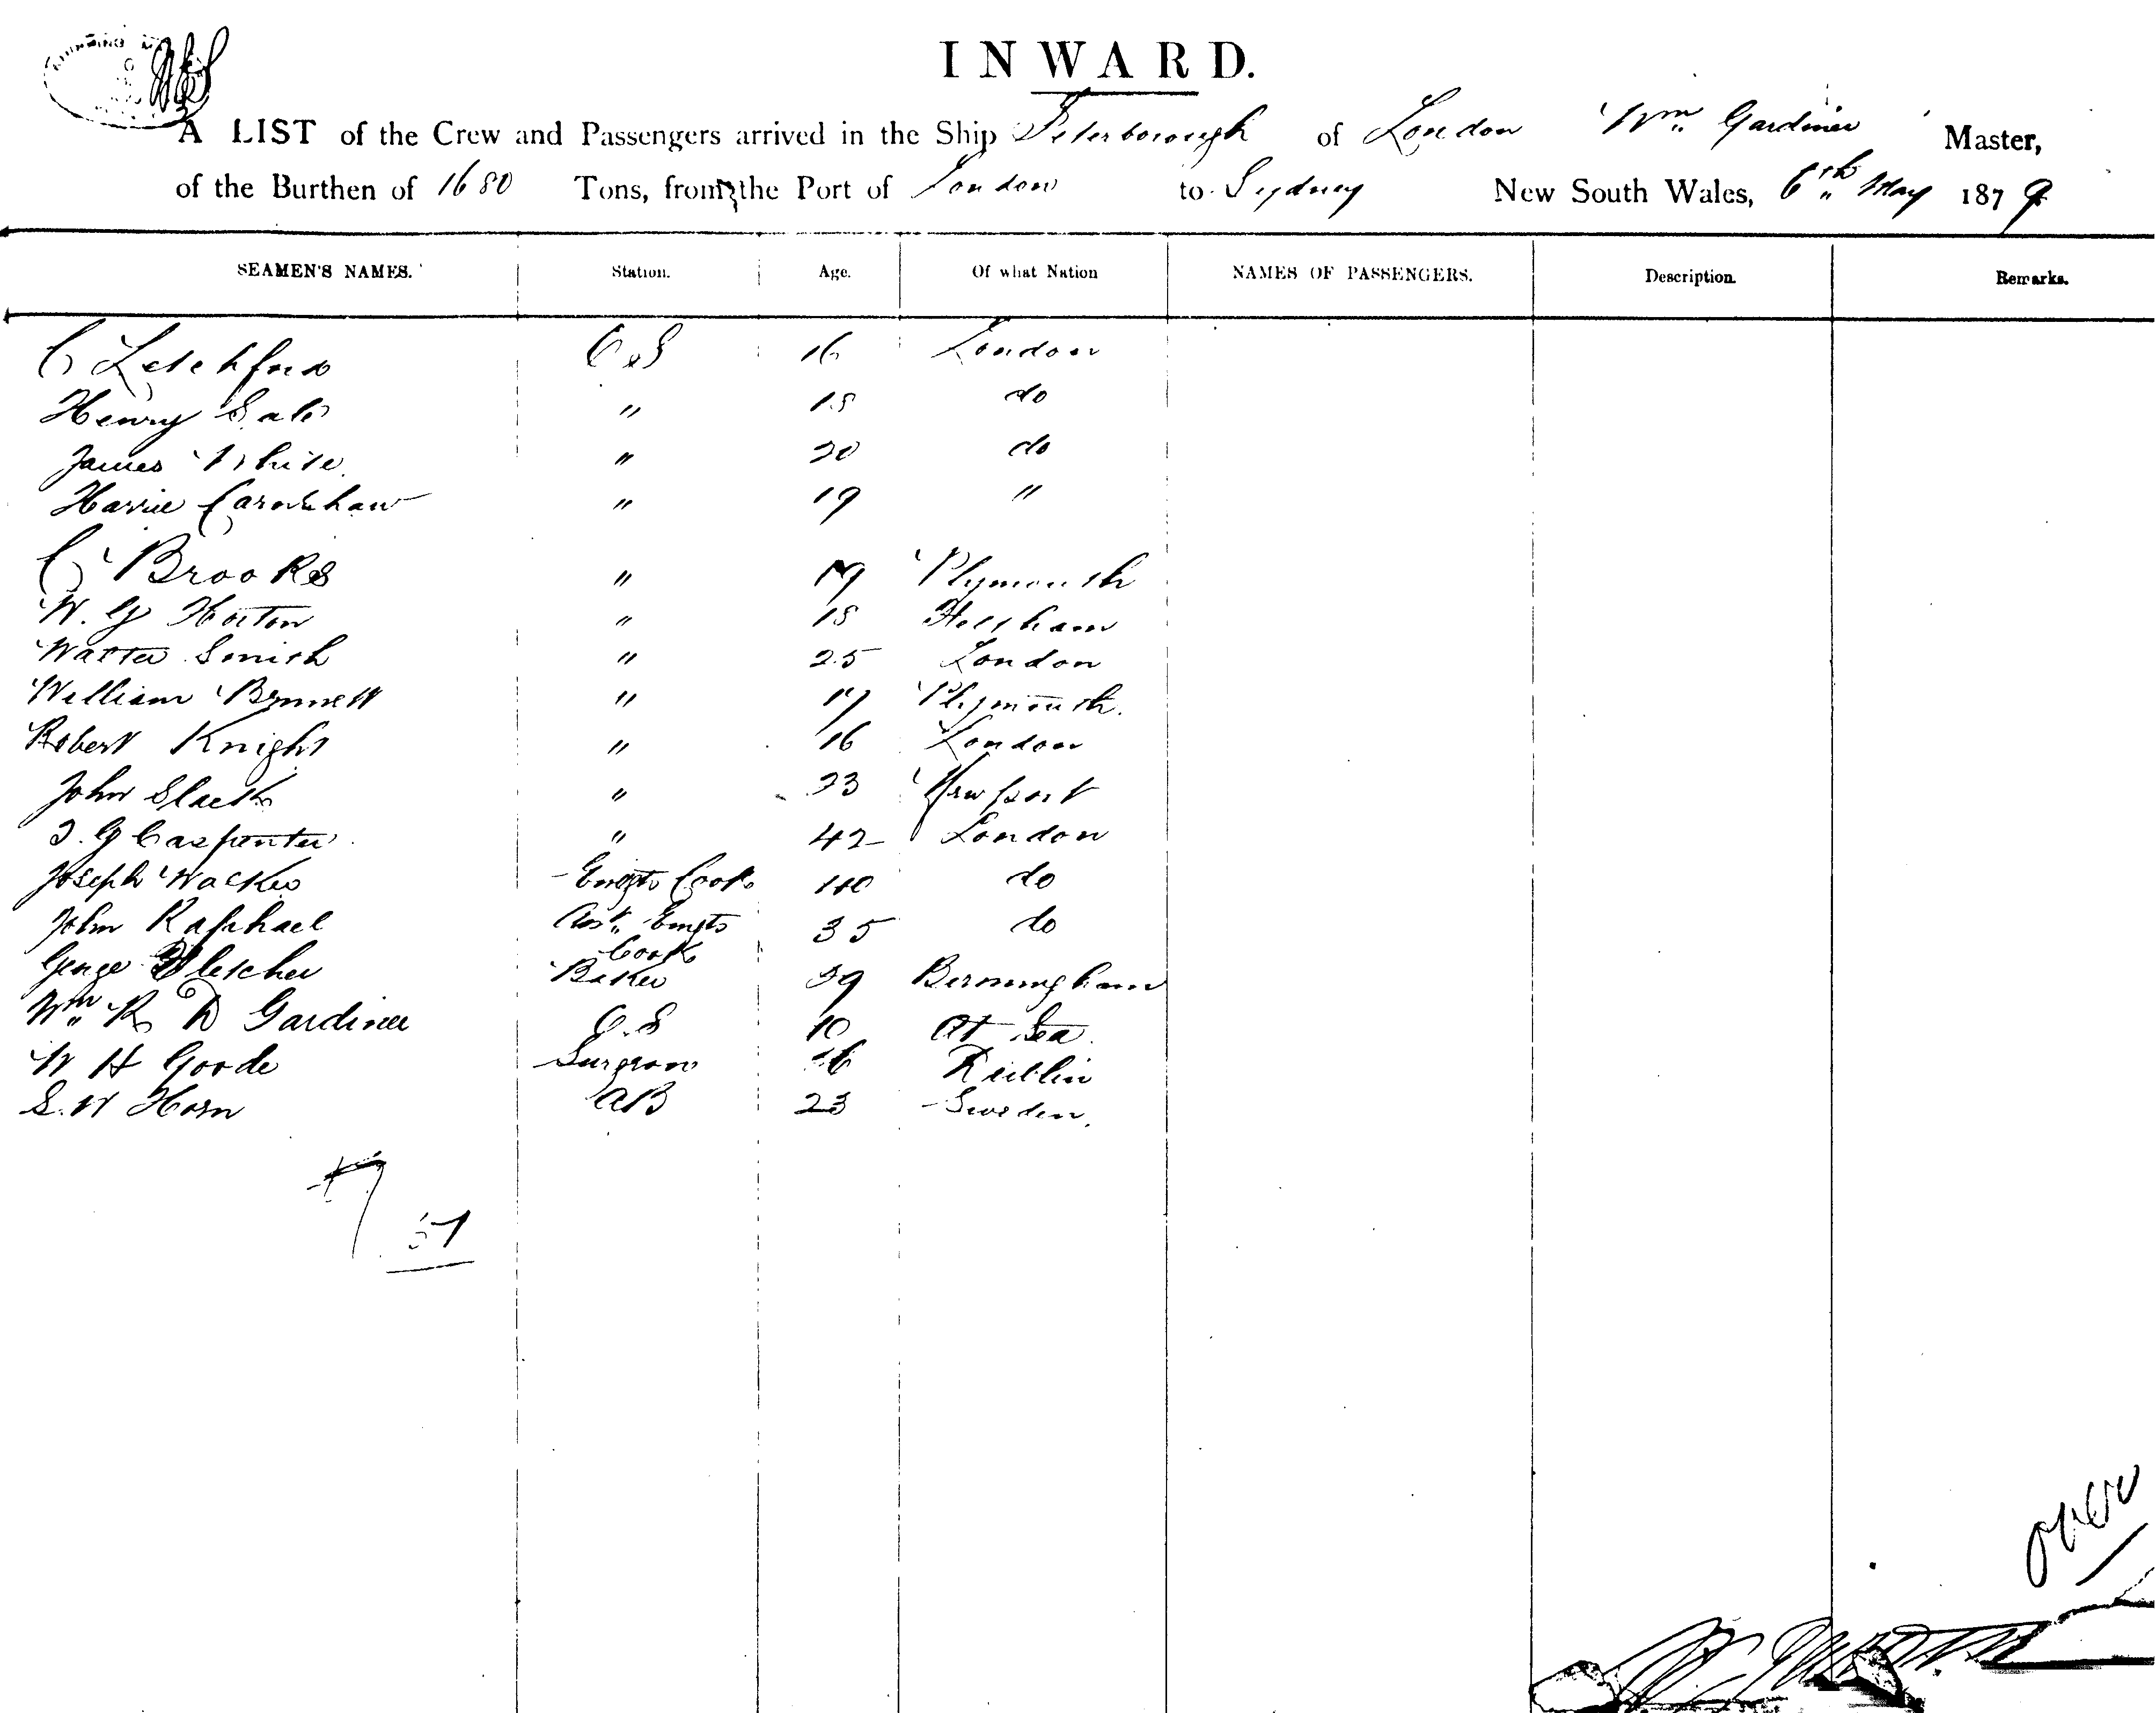 INWARD.
A LIST of the Crew and Passengers arrived in the Ship Peterborough of London Wm Gardiner Master,
of the Burthen of 1680 Tons, from the Port of London to Sydney New South Wales, 6th May 1879
SEAMEN'S NAMES. Station. Age. Of what Nation NAMES OF PASSENGERS. Description. Remarks.
C Letchford O.S 16 London
Henry Sale " 18 do
James White " 20 do
Harrie Carnshaw " 19 "
C Brooks " 19 Plymouth
W. G Horton " 18
Walter Smith " 25 London
William Bennett " 17 Plymouth.
Robert Knight " 16 London
John Slack " 23 Newport
J. G Carpenter " 42 London
Joseph Walker Emigts Cook 40 do
John Raphael Asst Emgts Cook 35 do
George Fletcher Baker 39 Birmingham
Wm R D Gardiner O.S 10 At Sea
W H Goode Surgeon 26 Dublin
S. W Horn AB 23 Sweden.
57
over